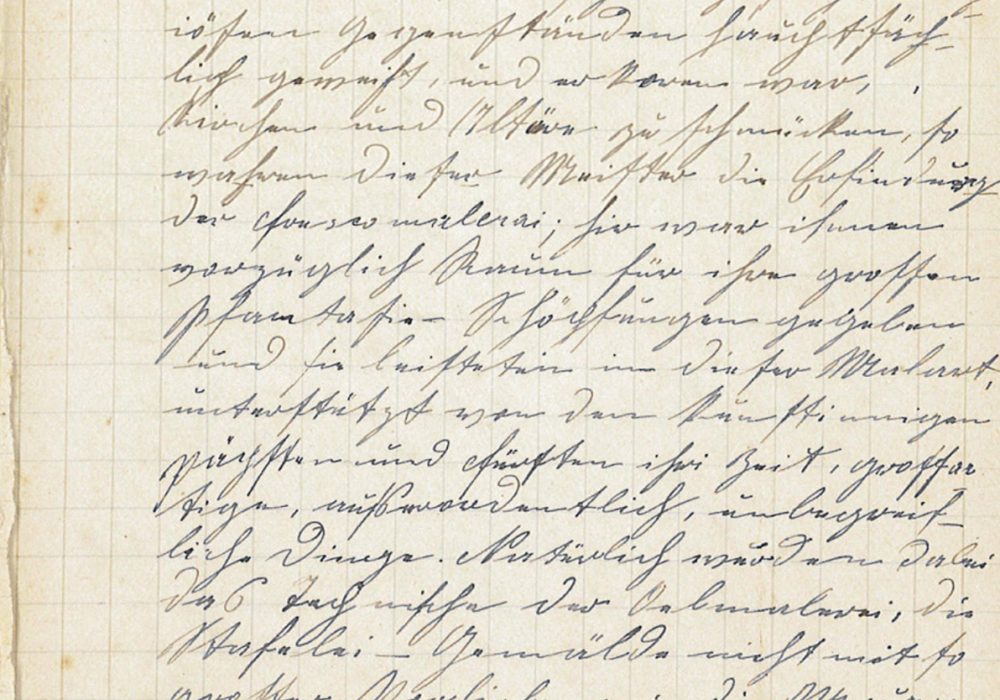 iösen Gegenständen hauchtsäch-
lich geweiht, und erkoren war,
Kirchen und Altäre zu schmücken, so
wahren dieser Meister die Erfindung
der Frescomalerai; hir war ihnen
vorzüglich Raum für ihre grossen
Phantasie- Schöpfungen gegeben
und sie leisteten in dieser Malart,
unterstützt von den kunstsinnigen
Päpsten und Fürsten ihri Zeit, grossar-
tige, außerordentlich, unbegreif-
liche Dinge. Natürlich wurden dabei
das Technische der Oelmalerei, die
Stafelei- Gemälde nicht mit so
grosser